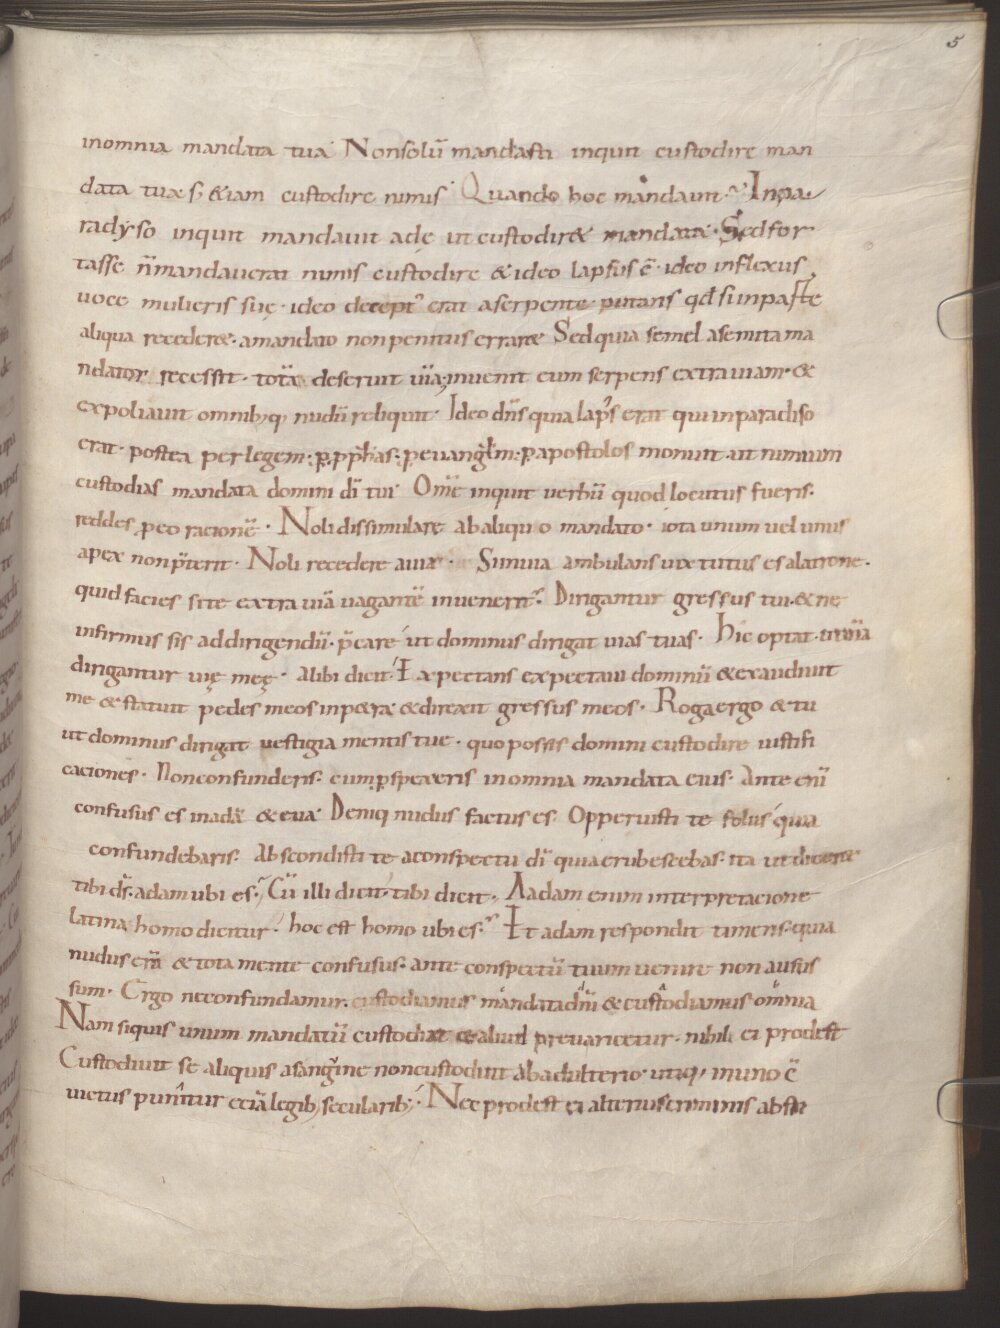 5
inomnia mandata tua Nonsolū mandasti inquit custodire man
data tua s; &iam custodire nimis Quando hoc mandauit· Inpa
radyso inquit mandauit adę ut custodir& mandata· Sedfor
tasse n̄mandauerat nimis custodire &ideo lapsus ē· ideo inflexus
uoce mulieris suę· ideo decept᾽ erat aserpente putans qđ siinparte
aliqua recederet· amandato nonpenitus errare Sedquia semel asemita ma
ndator recessit· totā deseruit uiā; inuenit eum serpens extrauiam· &
expoliauit omnib;q; nudū reliquit· Ideo dn̄s quia laps᾽ erat qui inparadiso
erat· postea per legem· ꝑ pp̄hās· ꝑeuangłm· ꝑapostolos monuit· ut nimium
custodias mandata domini dī tui· Om̄e inquit uerbū quod locutus fueris·
reddes ꝓeo racionē· Noli dissimulare abaliquo mandato· iota unum uel unus
apex non p̄terit· Noli recedere auia· Sinuia ambulans uix tutus es alatrone·
quid facies si te extra uiā uagantē inuenerit· Dirigantur gressus tui· & ne
infirmus sis addirigendū· p̄care ut dominus dirigat uias tuas· Hic optat· utinā
dirigantur uię meę· Alibi dicit· Expectans expectaui dominū &exaudiuit
me & statuit pedes meos inp&ra &direxit gressus meos· Rogaergo & tu
ut dominus dirigat uestigia mentis tue· quo possis domini custodire iustifi
caciones· Nonconfunderis· cumꝑspexeris inomnia mandata eius· Ante eni᷄
confusus es inadā & eua· Deniq nudus factus es· Opperuisti te foliis quia
confundebaris· Abscondisti te aconspectu dī quia erubescebas· ita ut diceret
tibi dš· adam ubi es· Cū illi dicit· tibi dicit· Aadam enim interpretacione
latina homo dicitur· hoc est homo ubi es· Et adam respondit timens· quia
nudus erā & tota mente confusus· ante conspectū tuum uenire non ausus
sum· Ergo neconfundamur· custodiamus mandata dn̄i & custodiamus omnia
Nam siquis unum mandatū custodiat & aliud preuaricetur· nihil ei prodest
Custodiuit se aliquis asanguine noncustodiuit abadulterio· utiq; inuno ē
uictus punitur eciā legib; secularib;· Nec prodest ei alterius criminis absti